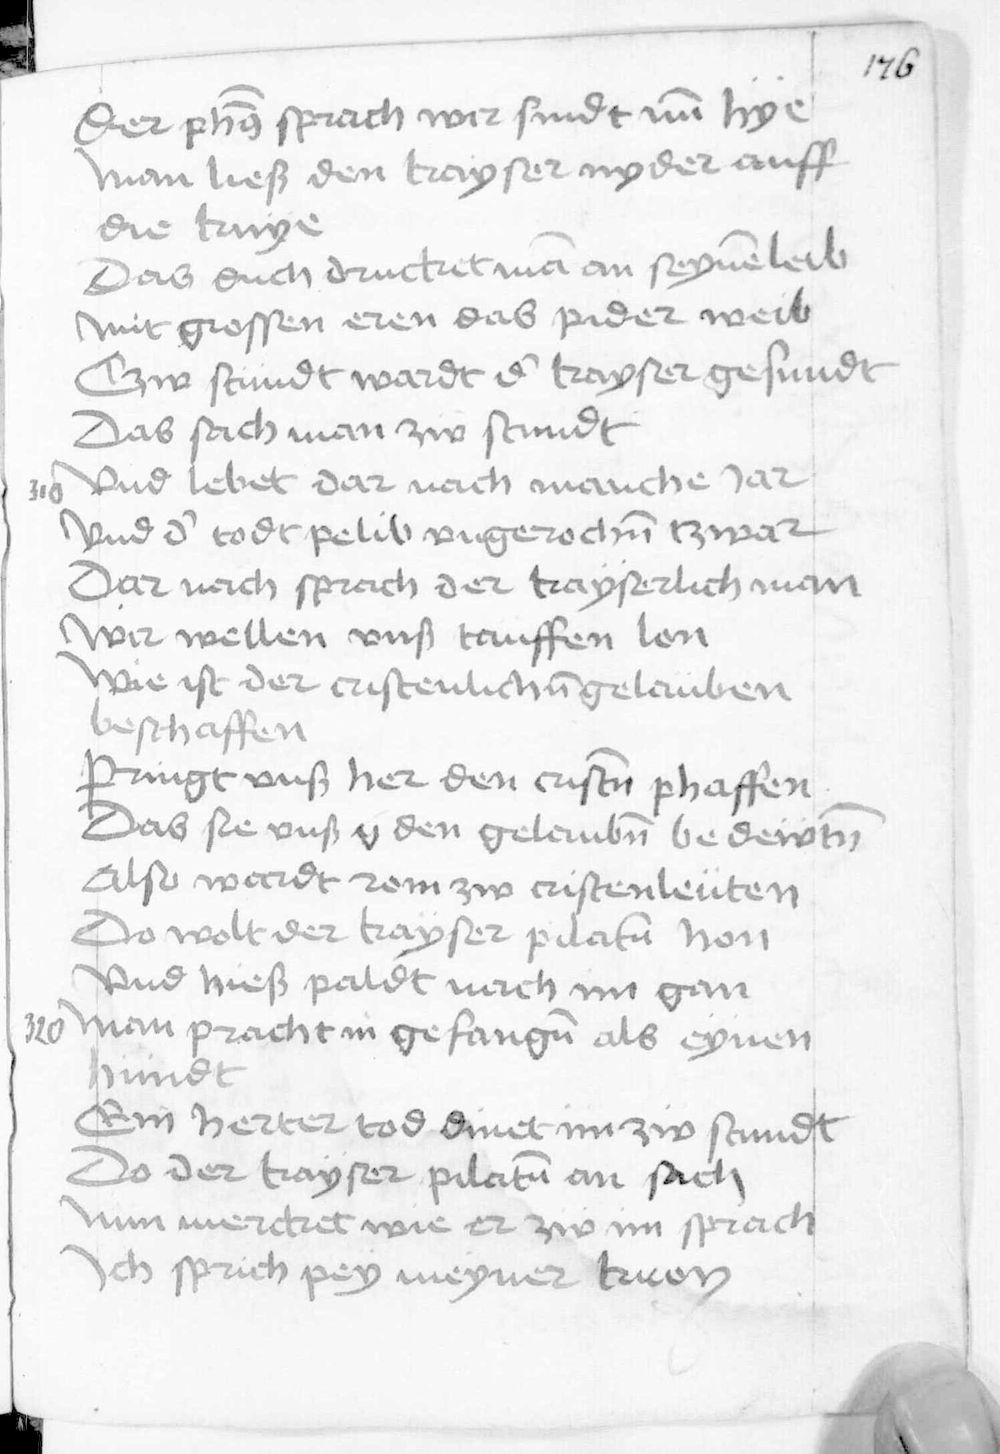 176
Der phs̄ sprach wir sindt nū hÿe
Man ließ den kayser nyder auff
die knÿe
Das duch drucket mā an seynē leib
Mit grossen eren das pider weib
Czw stundt wardt d' kayser gesundt
Das sach man zw stundt
310 Vnd lebet dar nach manche Jar
Vnd d' todt pelib vngerochn̄ tzwar
Dar nach sprach der kayserlich man
Wir wellen vnß tauffen lon
Wie ist der cristenlichn̄ gelauben
beschaffen
Pringt vnß her den cristn̄ phaffen
Das sie vnß den gelaubn̄ be dewtn̄
Also wardt rom zw cristenleüten
Do wolt der kayser pilatū hon
Vnd hieß paldt nach im gan
320 Man pracht in gefangn̄ als eynen
hundt
Ein herter tod dinet im zw stundt
Do der kayser pilatū an sach
Nun mercket wie er zw im sprach
Ich sprich pey meyner kron